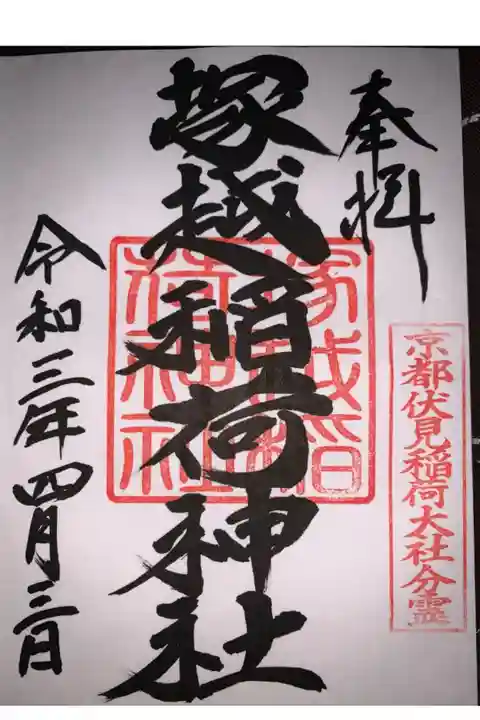 奉拝
京都伏見稲荷大社分霊
塚越稲荷神社
塚越稲
荷神社
令和三年四月三日